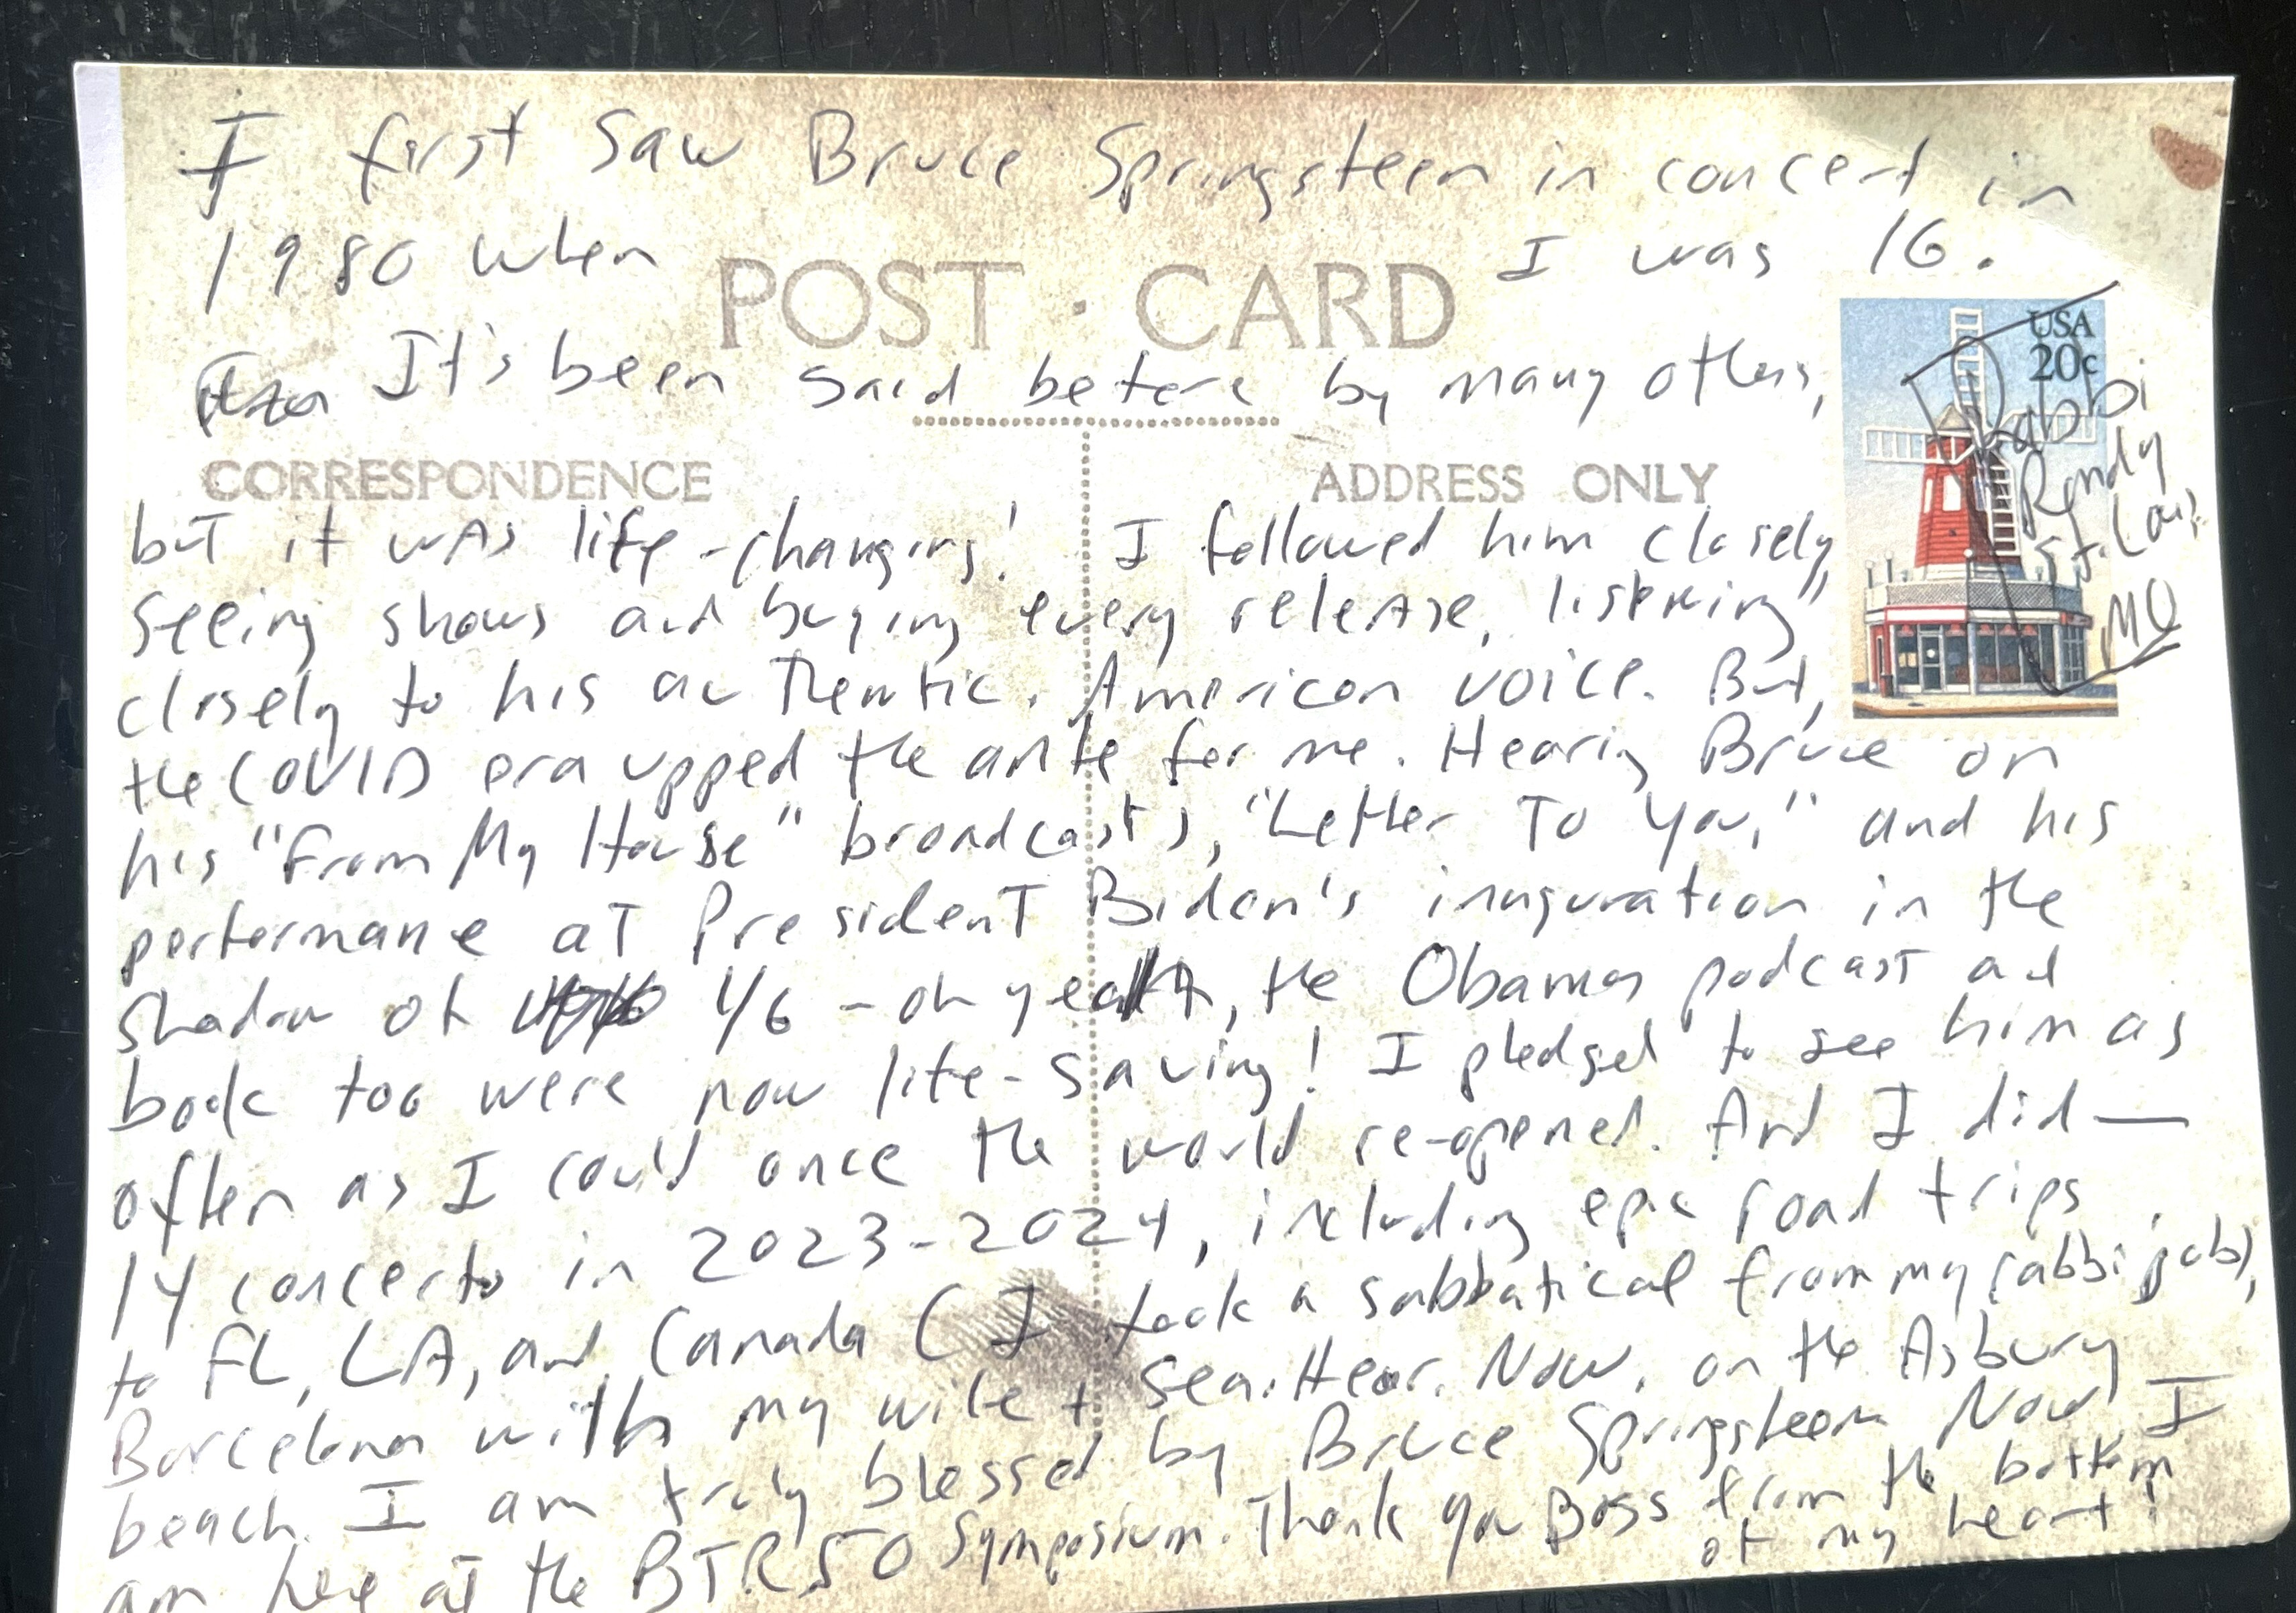 I first saw Bruce Springsteen in concert in
1980 when I was 16.
POST · CARD
It's been said before by many others,
CORRESPONDENCE ADDRESS ONLY
but it was life-changing! I followed him closely
seeing shows and buying every release, listening
closely to his authentic. American voice. But,
the COVID era upped the ante for me. Hearing Bruce on
his "From My House" broadcasts, "Letter To You," and his
performance at President Biden's inauguration in the
shadow of 1/6 - oh yeah, the Obama podcast and
book too were now life-saving! I pledged to see him as
often as I could once the world re-opened. And I did —
14 concerts in 2023-2024, including epic road trips
to FL, LA, and Canada (I took a sabbatical from my rabbi job),
Barcelona with my wife + Sea.Hear.Now. on the Asbury
beach. I am truly blessed by Bruce Springsteen. Now I
am here at the BTR50 Symposium. Thank you Boss from the bottom
of my heart!
USA
20c
Rabbi
Randy
St. Louis
MO